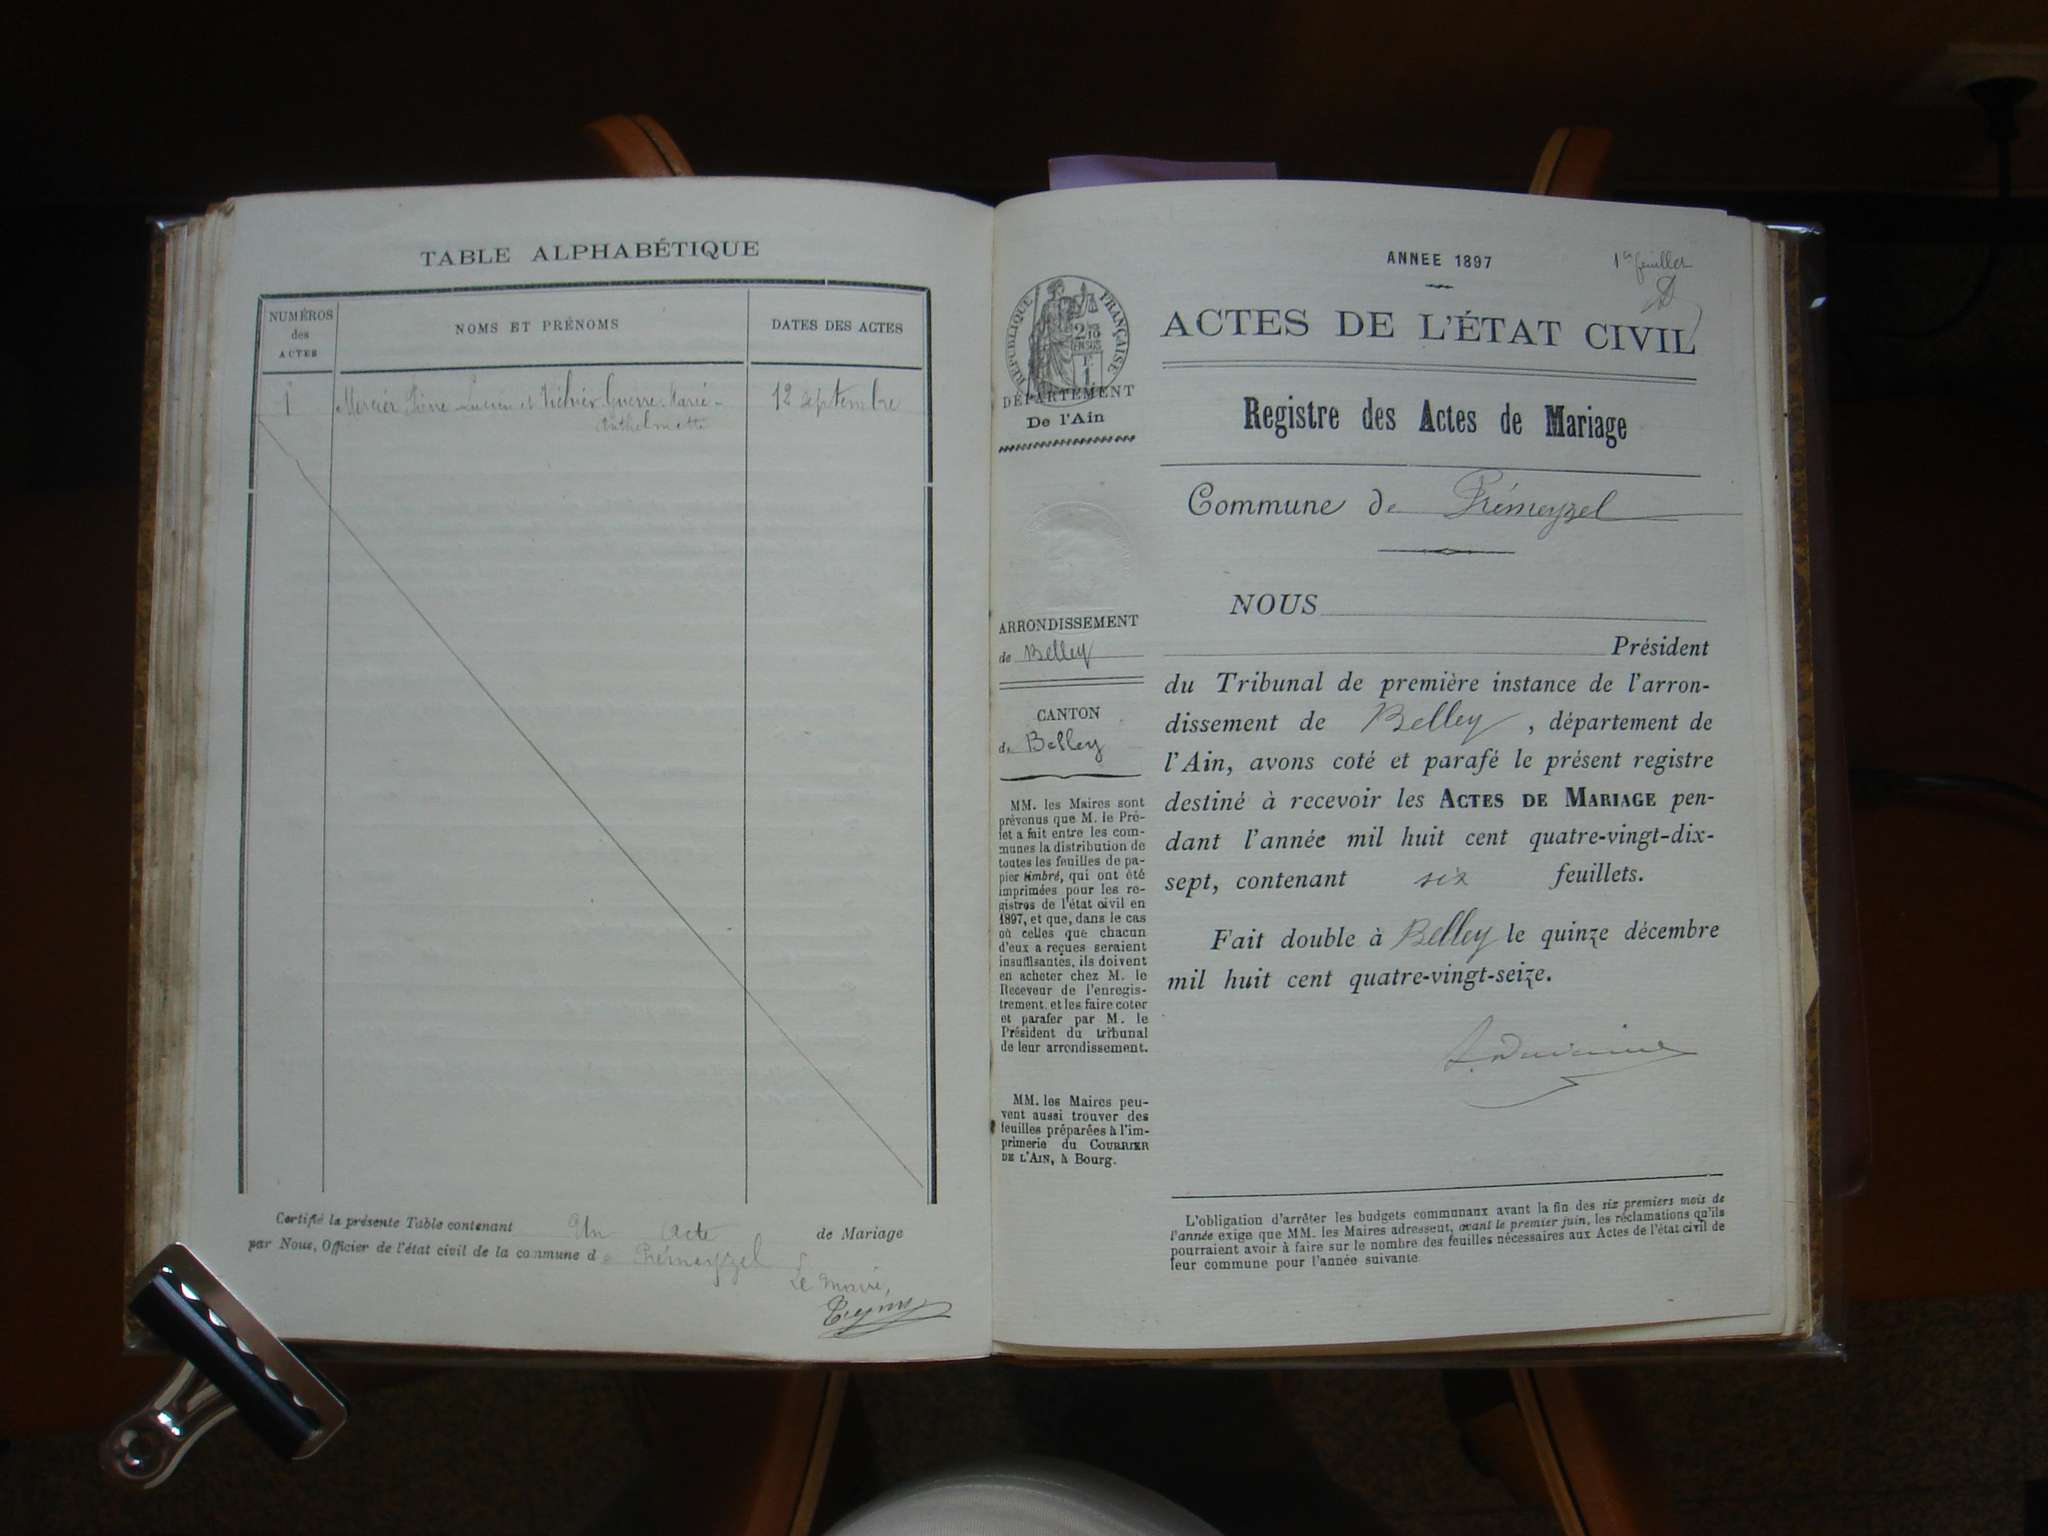 TABLE ALPHABÉTIQUE
NUMÉROS
des
ACTES
NOMS ET PRÉNOMS
DATES DES ACTES
1
Mercier Pierre Lucien et Guerre Marie
Anthelmette
12 septembre
Certifié la présente Table contenant Un acte de Mariage
par Nous, Officier de l'état civil de la commune de Prémeyzel
Le Maire,
ANNEE 1897
1er feuillet
RÉPUBLIQUE FRANÇAISE
DÉPARTEMENT
De l'Ain
ARRONDISSEMENT
de Belley
CANTON
de Belley
MM. les Maires sont
prévenus que M. le Pré-
fet a fait entre les com-
munes la distribution de
toutes les feuilles de pa-
pier timbré, qui ont été
imprimées pour les re-
gistres de l'état civil en
1897, et que, dans le cas
où celles que chacun
d'eux a reçues seraient
insuffisantes, ils doivent
en acheter chez M. le
Receveur de l'enregis-
trement, et les faire coter
et parafer par M. le
Président du tribunal
de leur arrondissement.
MM. les Maires peu-
vent aussi trouver des
feuilles préparées à l'im-
primerie du COURRIER
DE L'AIN, à Bourg.
ACTES DE L'ÉTAT CIVIL
Registre des Actes de Mariage
Commune de Prémeyzel
NOUS
Président
du Tribunal de première instance de l'arron-
dissement de Belley, département de
l'Ain, avons coté et parafé le présent registre
destiné à recevoir les ACTES DE MARIAGE pen-
dant l'année mil huit cent quatre-vingt-dix-
sept, contenant six feuillets.
Fait double à Belley le quinze décembre
mil huit cent quatre-vingt-seize.
L'obligation d'arrêter les budgets communaux avant la fin des six premiers mois de
l'année exige que MM. les Maires adressent, avant le premier juin, les réclamations qu'ils
pourraient avoir à faire sur le nombre des feuilles nécessaires aux Actes de l'état civil de
leur commune pour l'année suivante